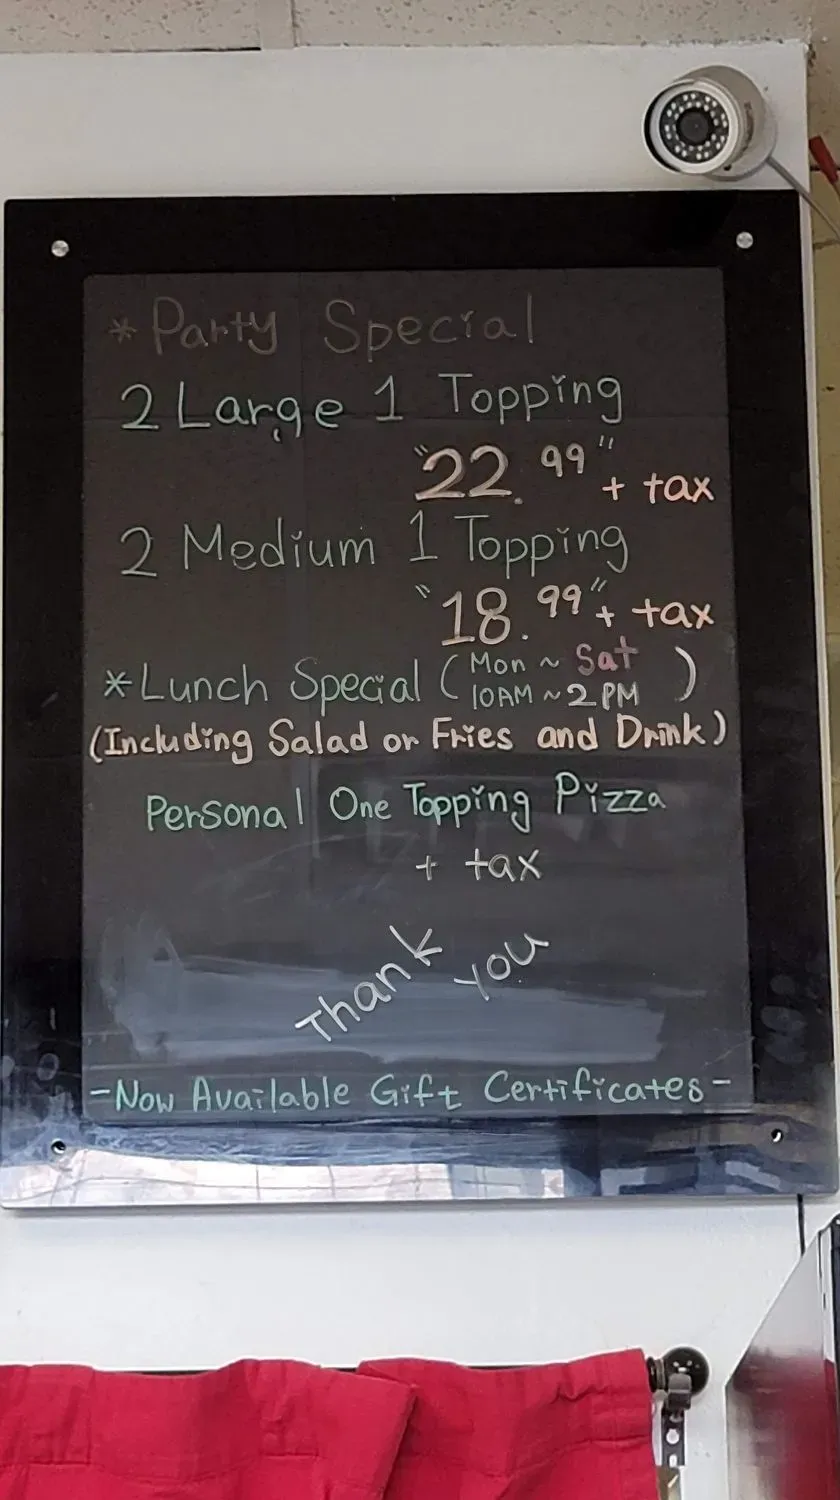 *Party Special
2 Large 1 Topping
"22.99" + tax
2 Medium 1 Topping
"18.99" + tax
*Lunch Special (Mon ~ Sat
10AM ~ 2PM)
(Including Salad or Fries and Drink)
Personal One Topping Pizza
+ tax
Thank you
-Now Available Gift Certificates-